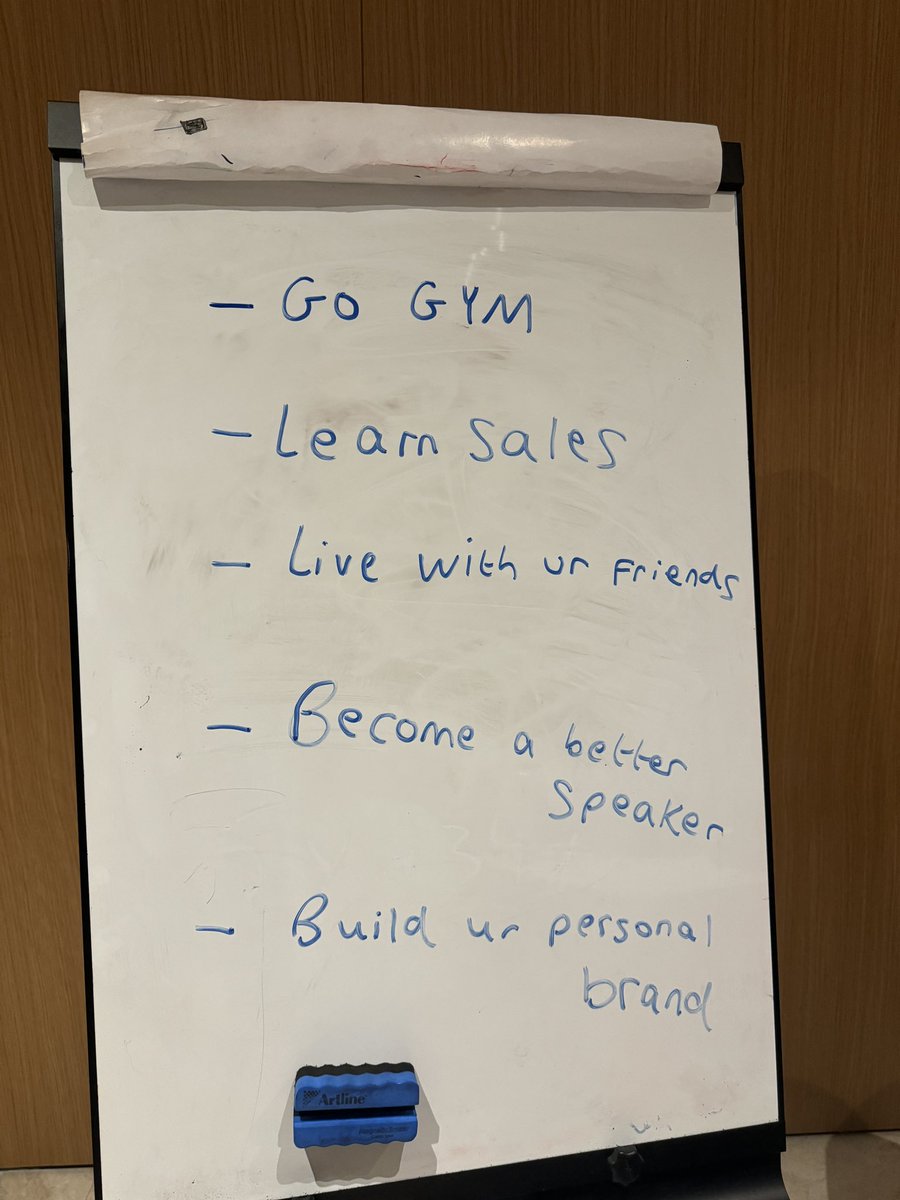 - Go GYM
- Learn Sales
- Live with ur Friends
- Become a better
Speaker
- Build ur personal
brand
Artline